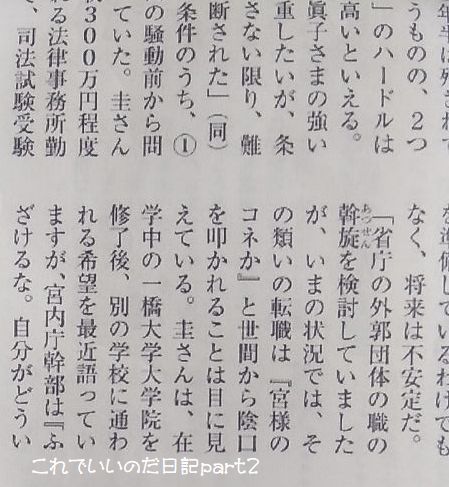 うものの、2つ
」のハードルは
高いといえる。
眞子さまの強い
重したいが、条
さない限り、難
断された」(同)
条件のうち、①
の騒動前から問
ていた。圭さん
300万円程度
る法律事務所勤
、司法試験受験
を準備しているわけでも
なく、将来は不安定だ。
「省庁の外郭団体の職の
斡旋を検討していました
あっせん
が、いまの状況では、そ
の類いの転職は『宮様の
コネか』と世間から陰口
を叩かれることは目に見
えている。圭さんは、在
学中の一橋大学大学院を
修了後、別の学校に通わ
れる希望を最近語ってい
ますが、宮内庁幹部は『ふ
ざけるな。自分がどうい
これでいいのだ日記part2